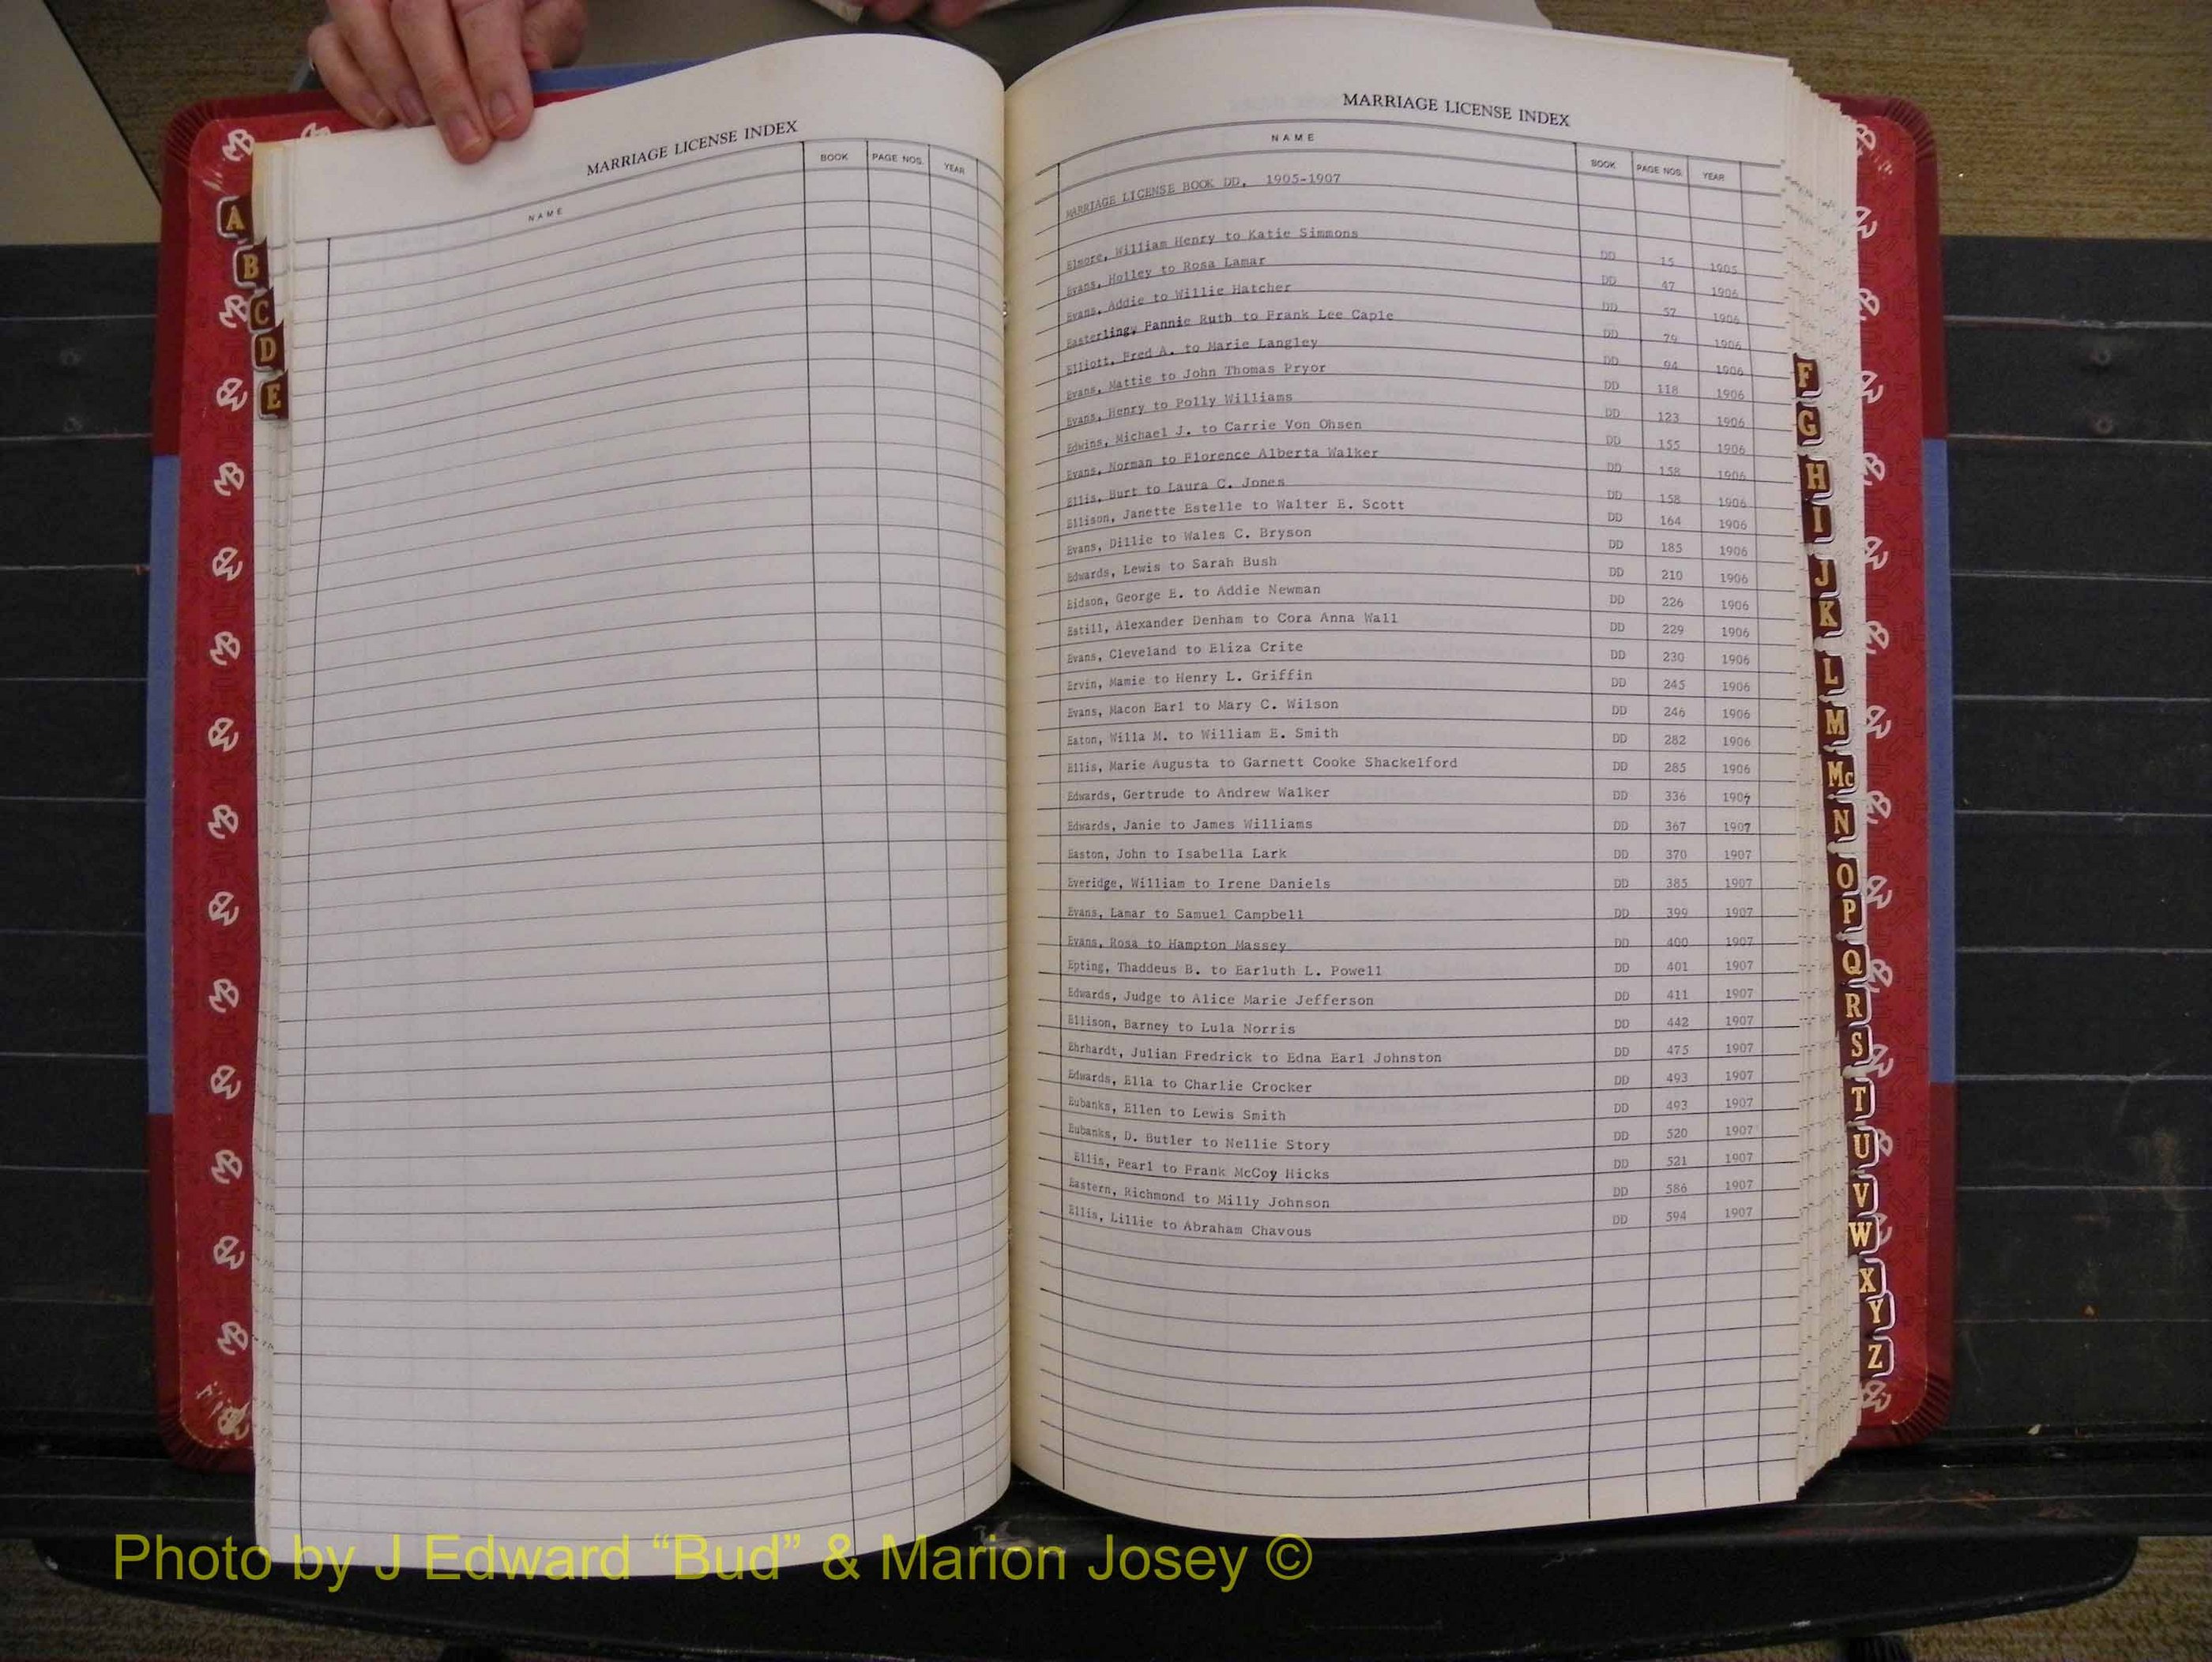 MARRIAGE LICENSE INDEX
NAME BOOK PAGE NOS. YEAR
A
B
C
D
E
MARRIAGE LICENSE INDEX
NAME BOOK PAGE NOS. YEAR
MARRIAGE LICENSE BOOK DD, 1905-1907
Elmore, William Henry to Katie Simmons DD 15 1905
Evans, Holley to Rosa Lamar DD 47 1906
Evans, Addie to Willie Hatcher DD 57 1906
Easterling, Fannie Ruth to Frank Lee Caple DD 79 1906
Elliott, Fred A. to Marie Langley DD 94 1906
Evans, Mattie to John Thomas Pryor DD 118 1906
Evans, Henry to Polly Williams DD 123 1906
Edwins, Michael J. to Carrie Von Ohsen DD 155 1906
Evans, Norman to Florence Alberta Walker DD 158 1906
Ellis, Burt to Laura C. Jones DD 158 1906
Ellison, Janette Estelle to Walter E. Scott DD 164 1906
Evans, Dillie to Wales C. Bryson DD 185 1906
Edwards, Lewis to Sarah Bush DD 210 1906
Eidson, George E. to Addie Newman DD 226 1906
Estill, Alexander Denham to Cora Anna Wall DD 229 1906
Evans, Cleveland to Eliza Crite DD 230 1906
Ervin, Mamie to Henry L. Griffin DD 245 1906
Evans, Macon Earl to Mary C. Wilson DD 246 1906
Eaton, Willa M. to William E. Smith DD 282 1906
Ellis, Marie Augusta to Garnett Cooke Shackelford DD 285 1906
Edwards, Gertrude to Andrew Walker DD 336 1907
Edwards, Janie to James Williams DD 367 1907
Easton, John to Isabella Lark DD 370 1907
Everidge, William to Irene Daniels DD 385 1907
Evans, Lamar to Samuel Campbell DD 399 1907
Evans, Rosa to Hampton Massey DD 400 1907
Epting, Thaddeus B. to Earluth L. Powell DD 401 1907
Edwards, Judge to Alice Marie Jefferson DD 411 1907
Ellison, Barney to Lula Norris DD 442 1907
Ehrhardt, Julian Fredrick to Edna Earl Johnston DD 475 1907
Edwards, Ella to Charlie Crocker DD 493 1907
Eubanks, Ellen to Lewis Smith DD 493 1907
Eubanks, D. Butler to Nellie Story DD 520 1907
Ellis, Pearl to Frank McCoy Hicks DD 521 1907
Eastern, Richmond to Milly Johnson DD 586 1907
Ellis, Lillie to Abraham Chavous DD 594 1907
F
G
H
I
J
K
L
M
Mc
N
O
P
Q
R
S
T
U
V
W
X
Y
Z
Photo by J Edward “Bud” & Marion Josey ©